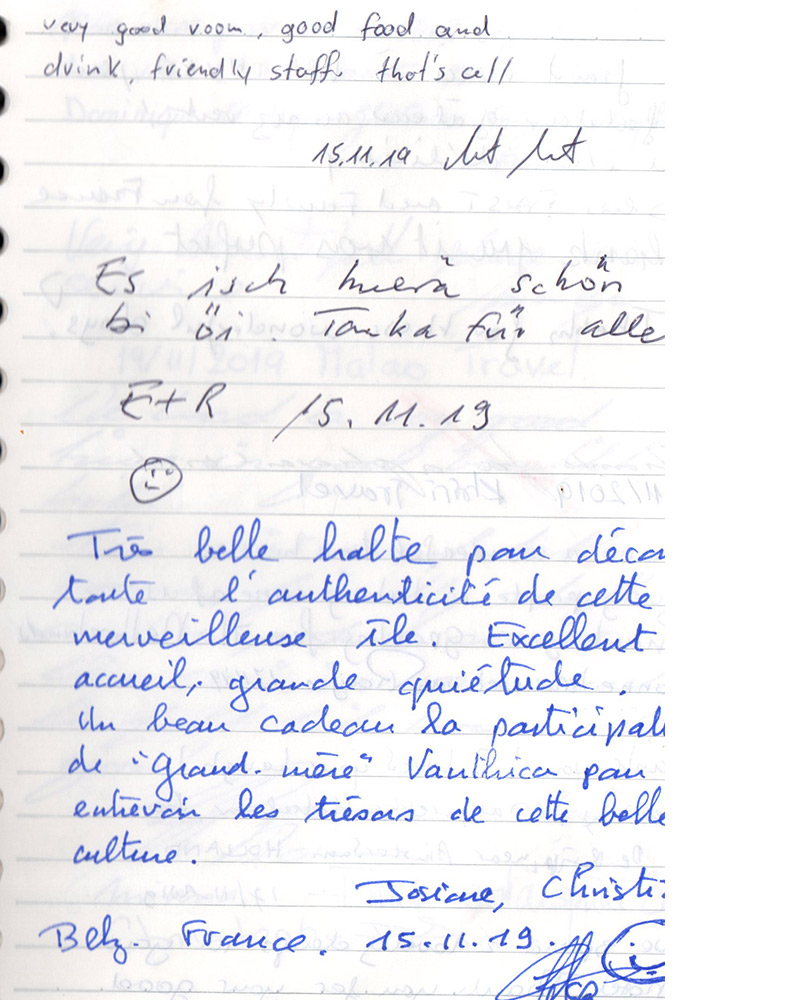 very good room, good food and
drink, friendly staff that's all
15.11.19
Es isch huerä schön
bi öi. Tanka für alle
E+R 15.11.19
Très belle halte pour déco
toute l'authenticité de cette
merveilleuse île. Excellent
accueil, grande quiétude.
Un beau cadeau la participat
de "Grand-mère" Vanthica pour
entrevoir les trésors de cette belle
culture.
Josiane, Christi
Belz. France. 15.11.19.